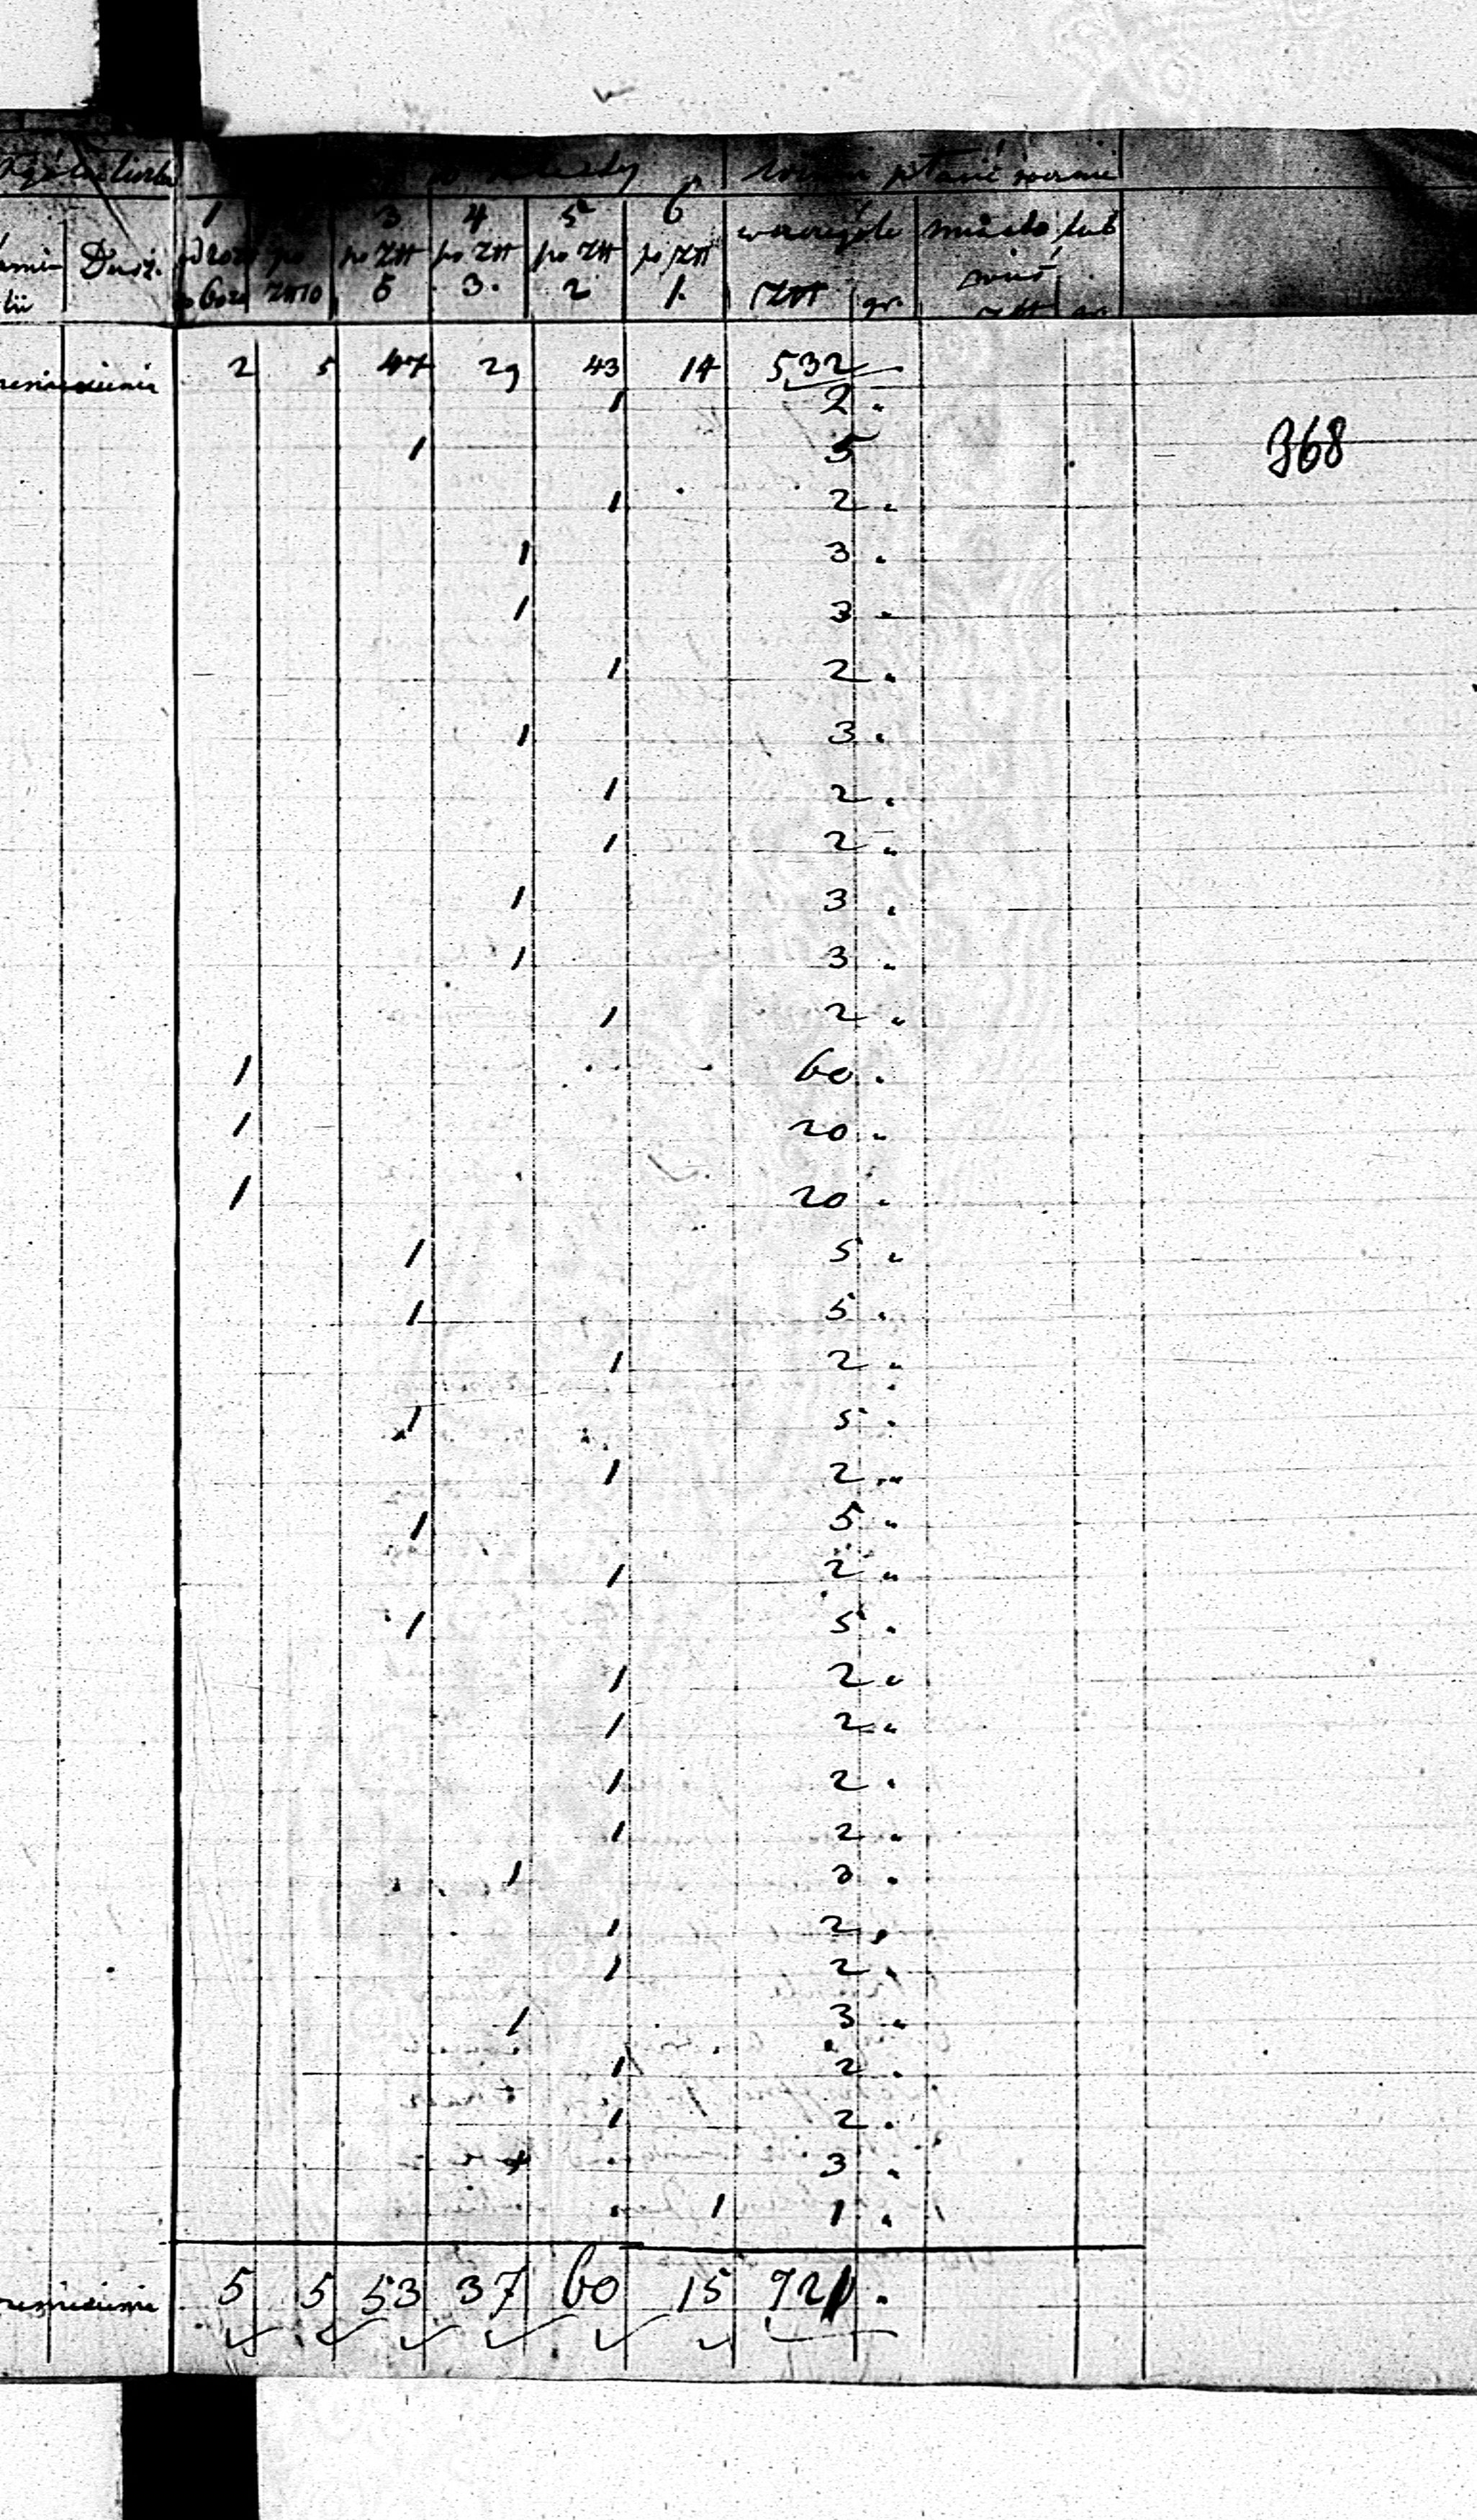 należy winni płacić rocznie
1 3 4 5 6 w szczególe miasto lub
Dusz. od 20 po po Złt po Złt po Złt po Złt wieś
do 60 Złt 10 5 3. 2 1. Złt gr. Złt gr.
przeniesienia 2 5 47 29 43 14 532
1 2 "
1 5
368
1 2 "
1 3 "
1 3 "
1 2 "
1 3 "
1 2 "
1 2 "
1 3 "
1 3 "
1 2 "
1 60 "
1 20 "
1 20 "
1 5 "
1 5 "
1 2 "
1 5 "
1 2 "
1 5 "
1 2 "
1 5 "
1 2 "
1 2 "
1 2 "
1 2 "
1 3 "
1 2 "
1 2 "
1 3 "
1 2 "
1 2 "
1 3 "
1 1 "
przeniesienia 5 5 53 37 60 15 721 "